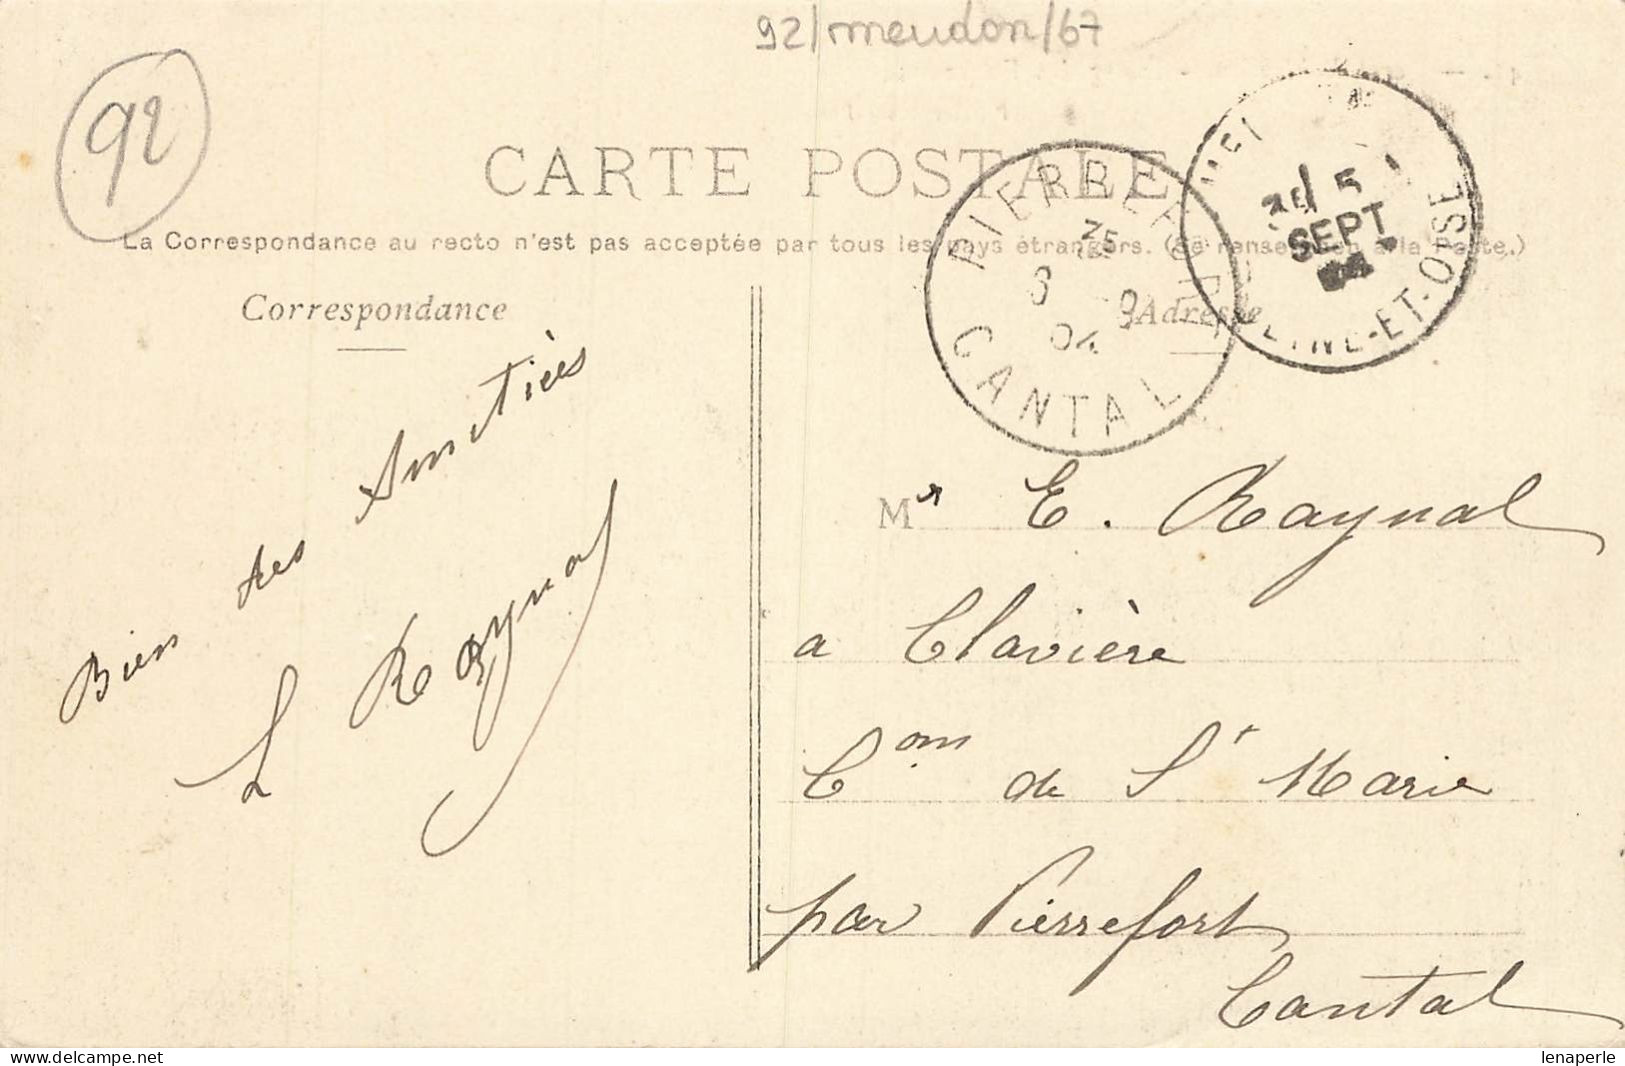 92/meudon/67
92
CARTE POSTALE
La Correspondance au recto n'est pas acceptée par tous les pays étrangers. (Se renseigner à la Poste.)
Correspondance
Adresse
PIERREFORT
6 9
04
CANTAL
5
SEPT
SEINE-ET-OISE
Bien des Amitiés
L Raynal
Mr E. Raynal
a Clavière
Com de St Marie
par Pierrefort
Cantal
delcampe.net
lenaperle